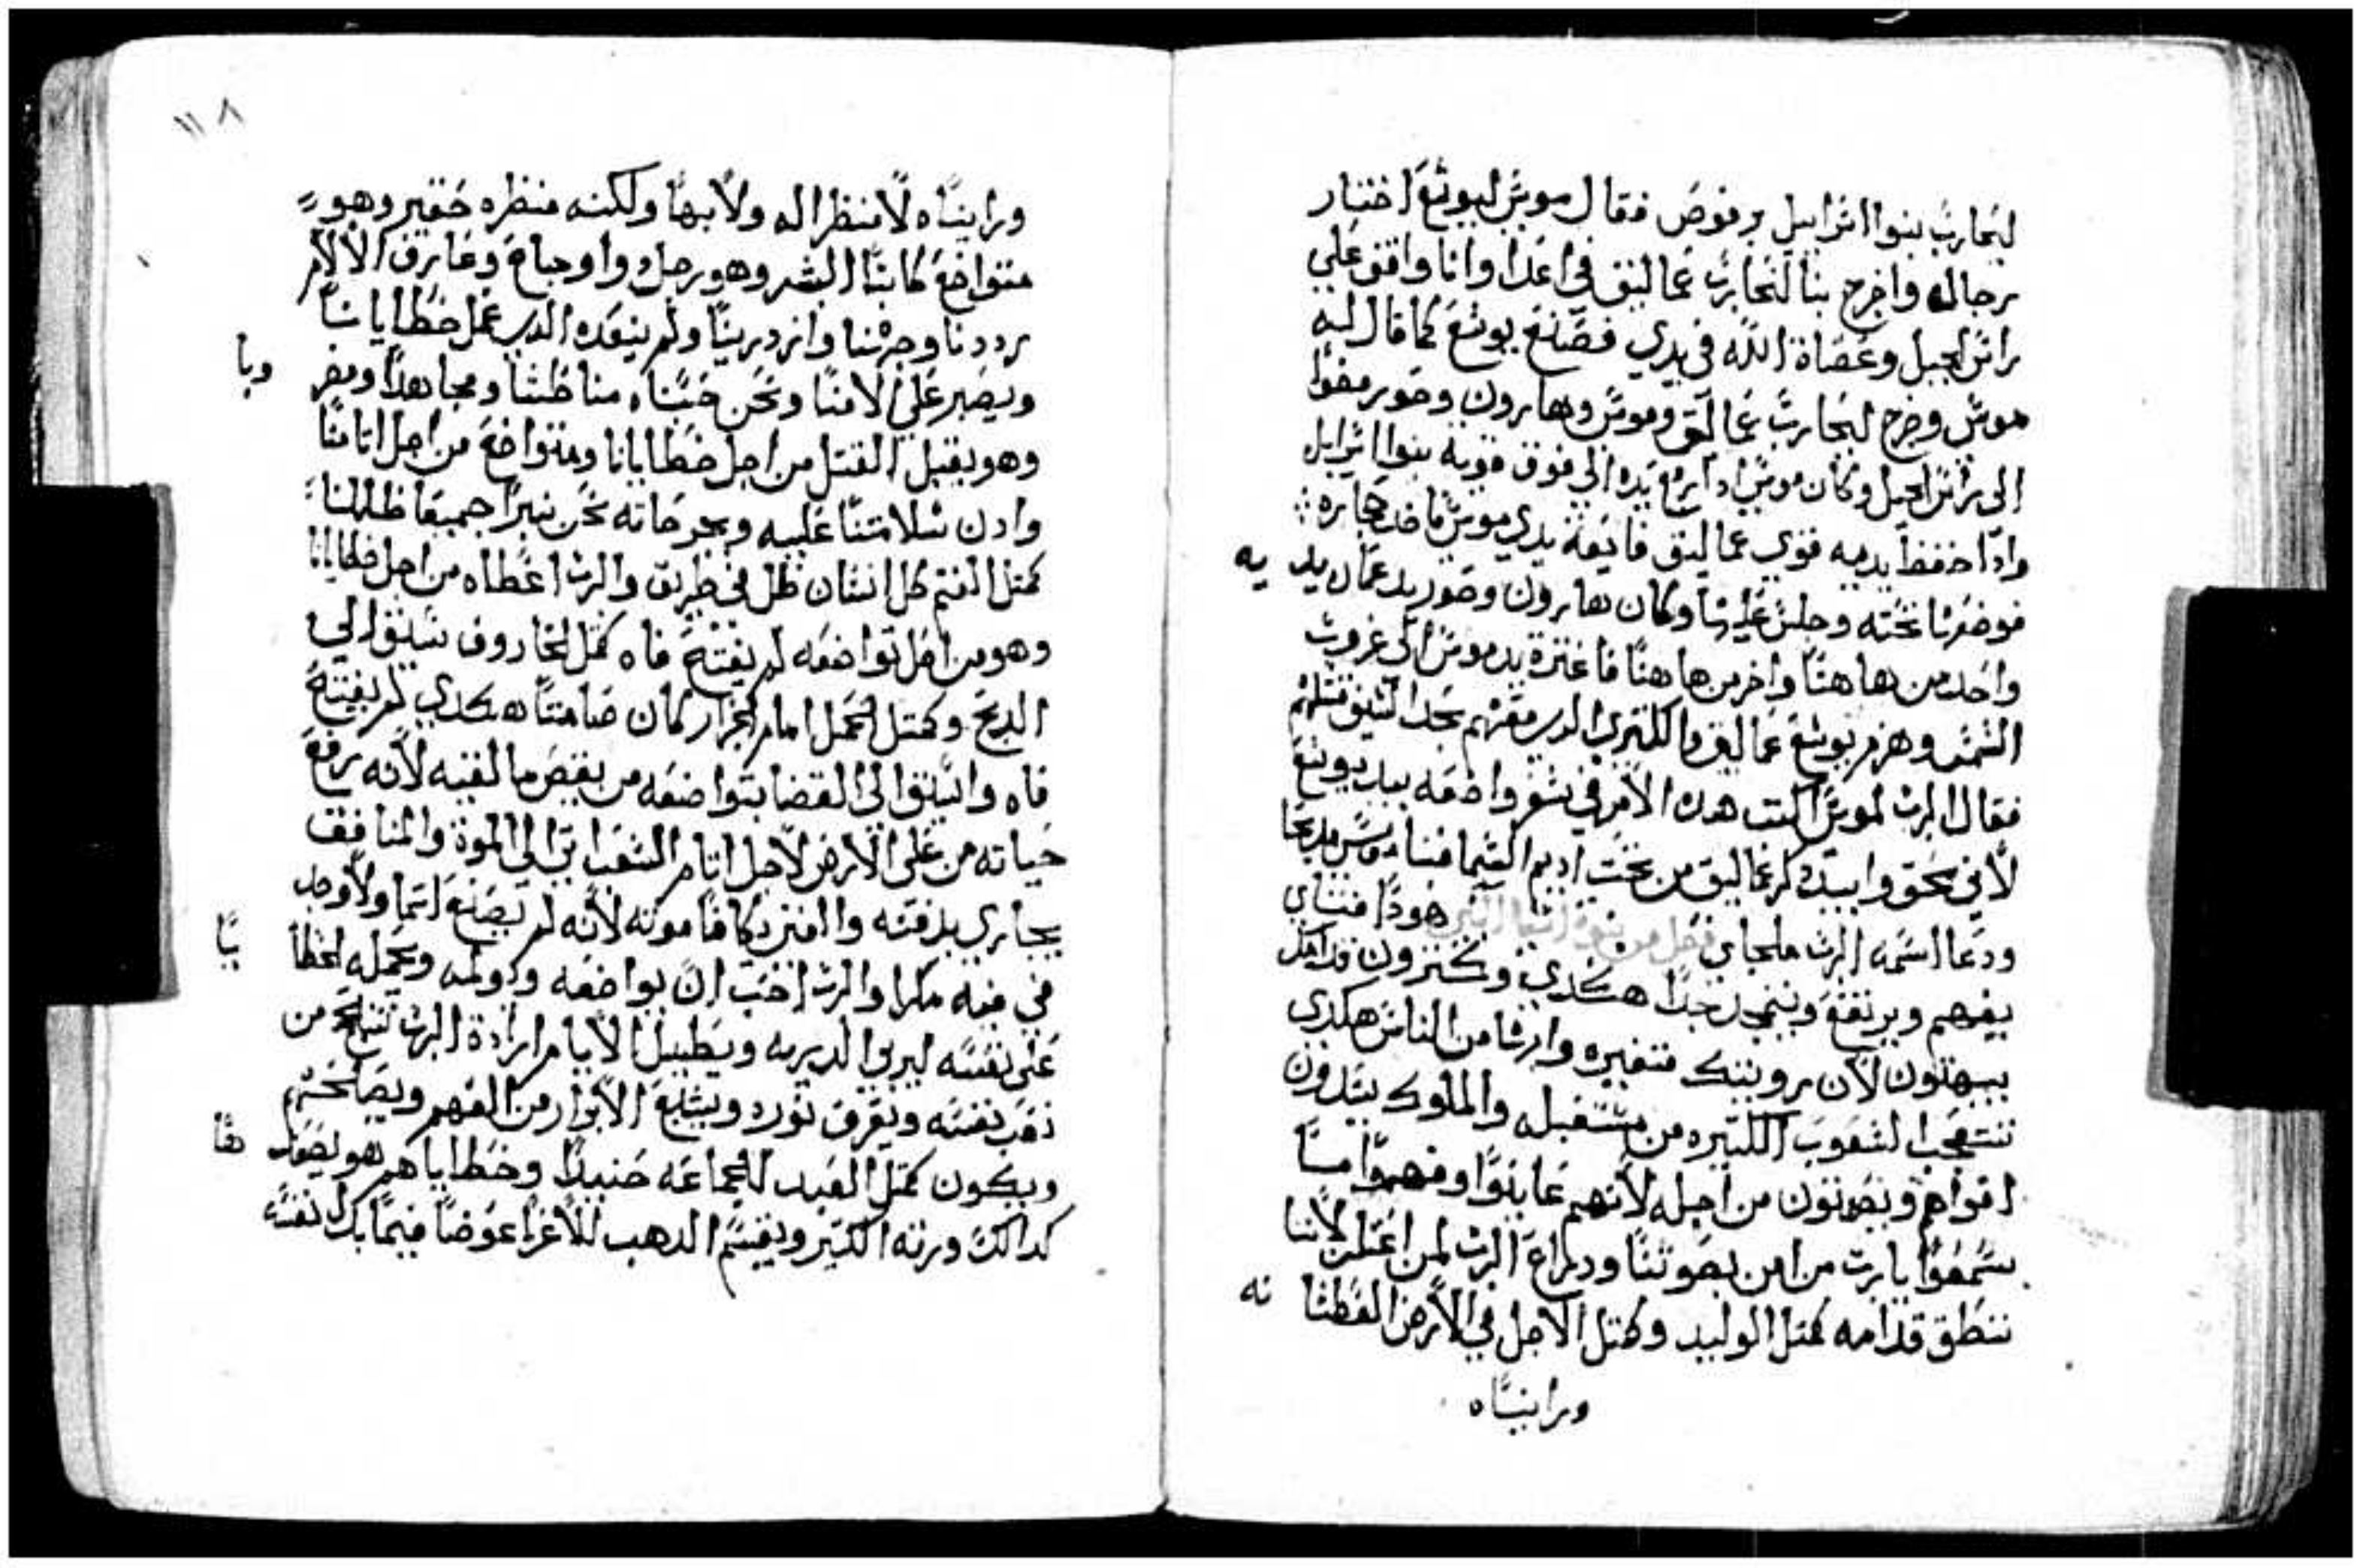 ليحارب بنوا اسراييل برفوص فقال موسى ليوشع اختار
رجاله واخرج بنا لنحارب عماليق في اغدا وانا واقف علي
راس الجبل وعصاة الله في يدي فصنع يوشع كما قال له
موسى وخرج ليحارب عمالق وموسى وهارون وحور مضوا
الى راس الجبل وكان موسى اذا رفع يده الي فوق قويه بنوا اسرايل
واذا خفض يديه قوي عماليق فايعة يدي موسى فاخد حجاره
فوضعها تحته وجلس عليها وكان هارون وحور يدعمان يديه
واحد من هاهنا واخر من هاهنا فاعتزة يد موسى الى غروب
الشمس وهزم يوشع عماليق والكتير الدي معهم بحد السيف قتلهم
فقال الرب لموسى اكتب هده الامر في سفر واضعه بيد يوشع
لاني بمحق وابيده ذكر عماليق من تحت اديم السما فبنا موسى مدبحا
ودعا اسمه الرب ملجاي فصل من نبوة اشعيا النبي هودا فتاي
يفهم ويرتفع ويتمجد جدا هكدي وكتيرون قد امك
يبهتون لان رويتك متغيره وارشا من الناس هكدي
تتعجب الشعوب الكتيره من مستقبله والملوك يسدون
افواههم ويصمتون من اجله لانهم عاينوا وفهموا مسا
سمعوا يارب من امن بصوتنا ودراع الرب لمن اعتلن لاننا
ننطق قدامه كمتل الوليد وكمتل الاصل في الارض العطشانه
وراينناه
١١٨
وراينناه لا منظر اله ولا بها ولكنه منظره حقير وهو
متواضع كابنا البشر وهو رجل واوجباع وعارف الالام
رددنا وجوهنا وازدرينا ولم نيعده الدي عمل خطايانا
ويصبر على الامنا ونحن حسبناه مناطشا ومجاهدا ومضروبا
وهو يقبل القتل من اجل خطايانا ومتواضع من اجل اتامنا
وادن سلامتنا عليه وبجرحاته نحن نبرا جميعا ظللنا
كمتل الغنم كل انسان ظل في طريق والرب اعطاه من اجل خطايانا
وهو من اجل تواضعه لم يفتح فاه كمتل الخاروف سيق الي
الدبح وكمتل الحمل امام الجزار كان صامتا هكدي لم يفتح
فاه وانساق الى القضا بتواضعه من يقص ما لقيه لانه رفع
حياته من على الارض لاجل اتام الشعب اتى الى الموت والمنافق
يجازي بدفنه والغني مكافا موته لانه لم يصنع اتما ولا وجد
في فيه مكرا والرب احب ان يواضعه ويولمه ويحمله الخطايا
على نفسه ليري الدريه ويطيل الايام ارادة الرب تنجح من
تعب نفسه ويعرف نوره ويشبع الابرار من الفهم ويصالحهم
ويكون كمتل العبد للجماعه حنيدا وخطاياهم هو يصعدها
كدالك ورته الكتير ويقسم الدهب للاعزا عوضا فيما بدل نفسه